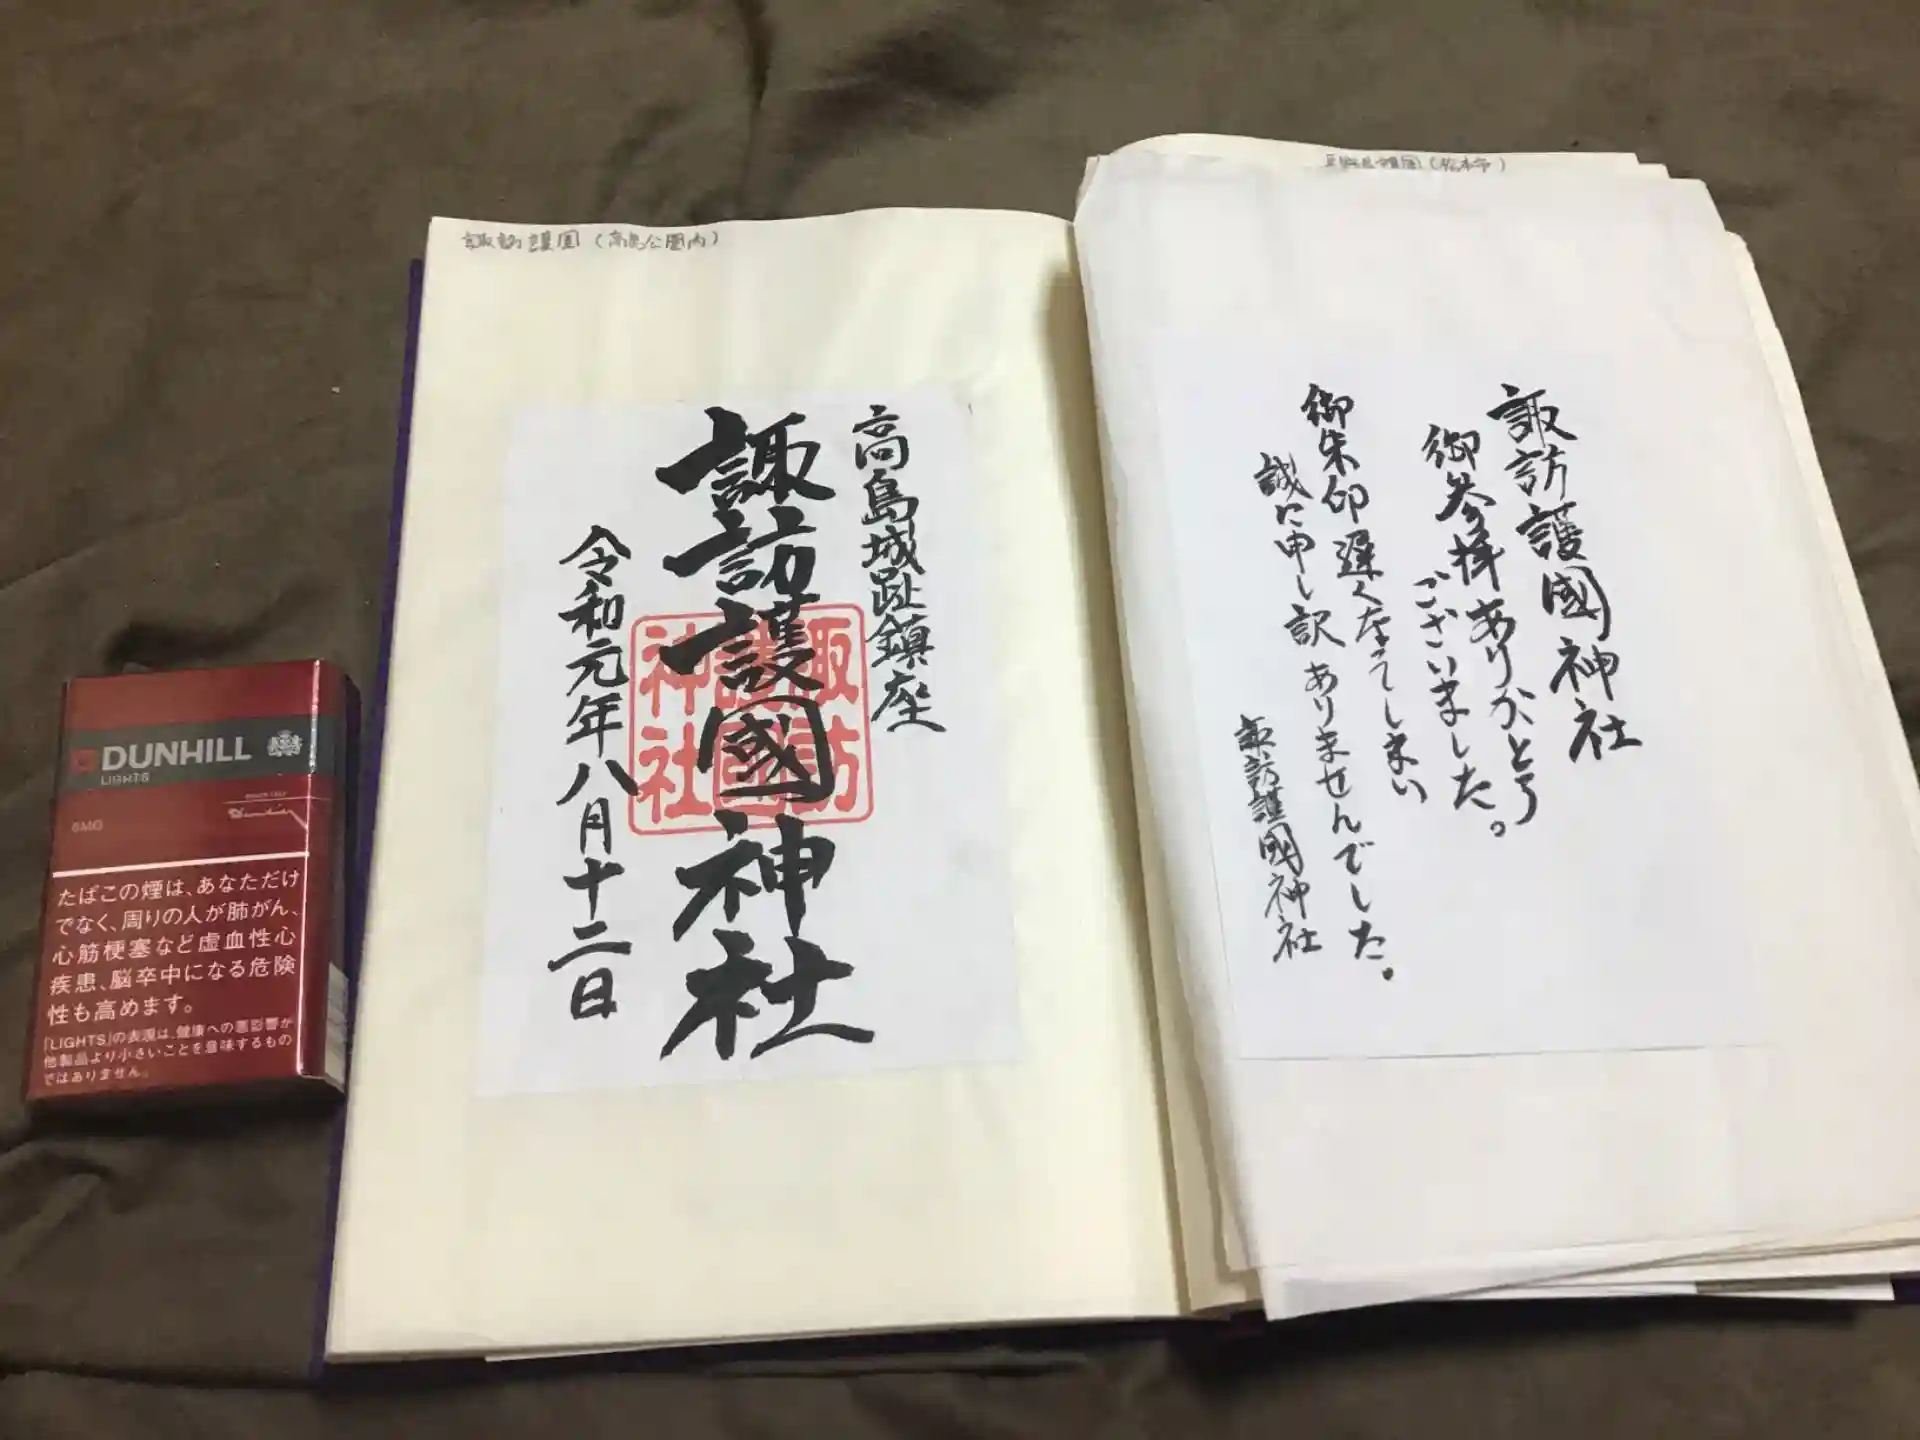 諏訪護国(高島公園内)
高島城趾鎮座
諏訪護國神社
令和元年八月十二日
諏訪
護國
神社
護国(松本市)
諏訪護國神社
御参拝ありがとう
ございました。
御朱印遅くなってしまい
誠に申し訳ありませんでした。
諏訪護國神社
DUNHILL
LIGHTS
6MG
たばこの煙は、あなただけ
でなく、周りの人が肺がん、
心筋梗塞など虚血性心
疾患、脳卒中になる危険
性も高めます。
「LIGHTS」の表現は、健康への悪影響が
他製品より小さいことを意味するもの
ではありません。